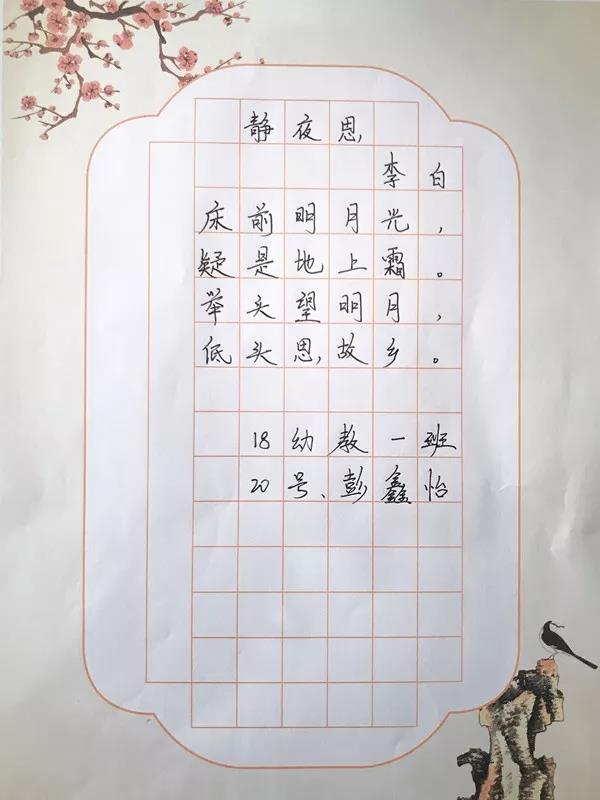 静夜思
李白
床前明月光，
疑是地上霜。
举头望明月，
低头思故乡。
18幼教一班
20号、彭鑫怡